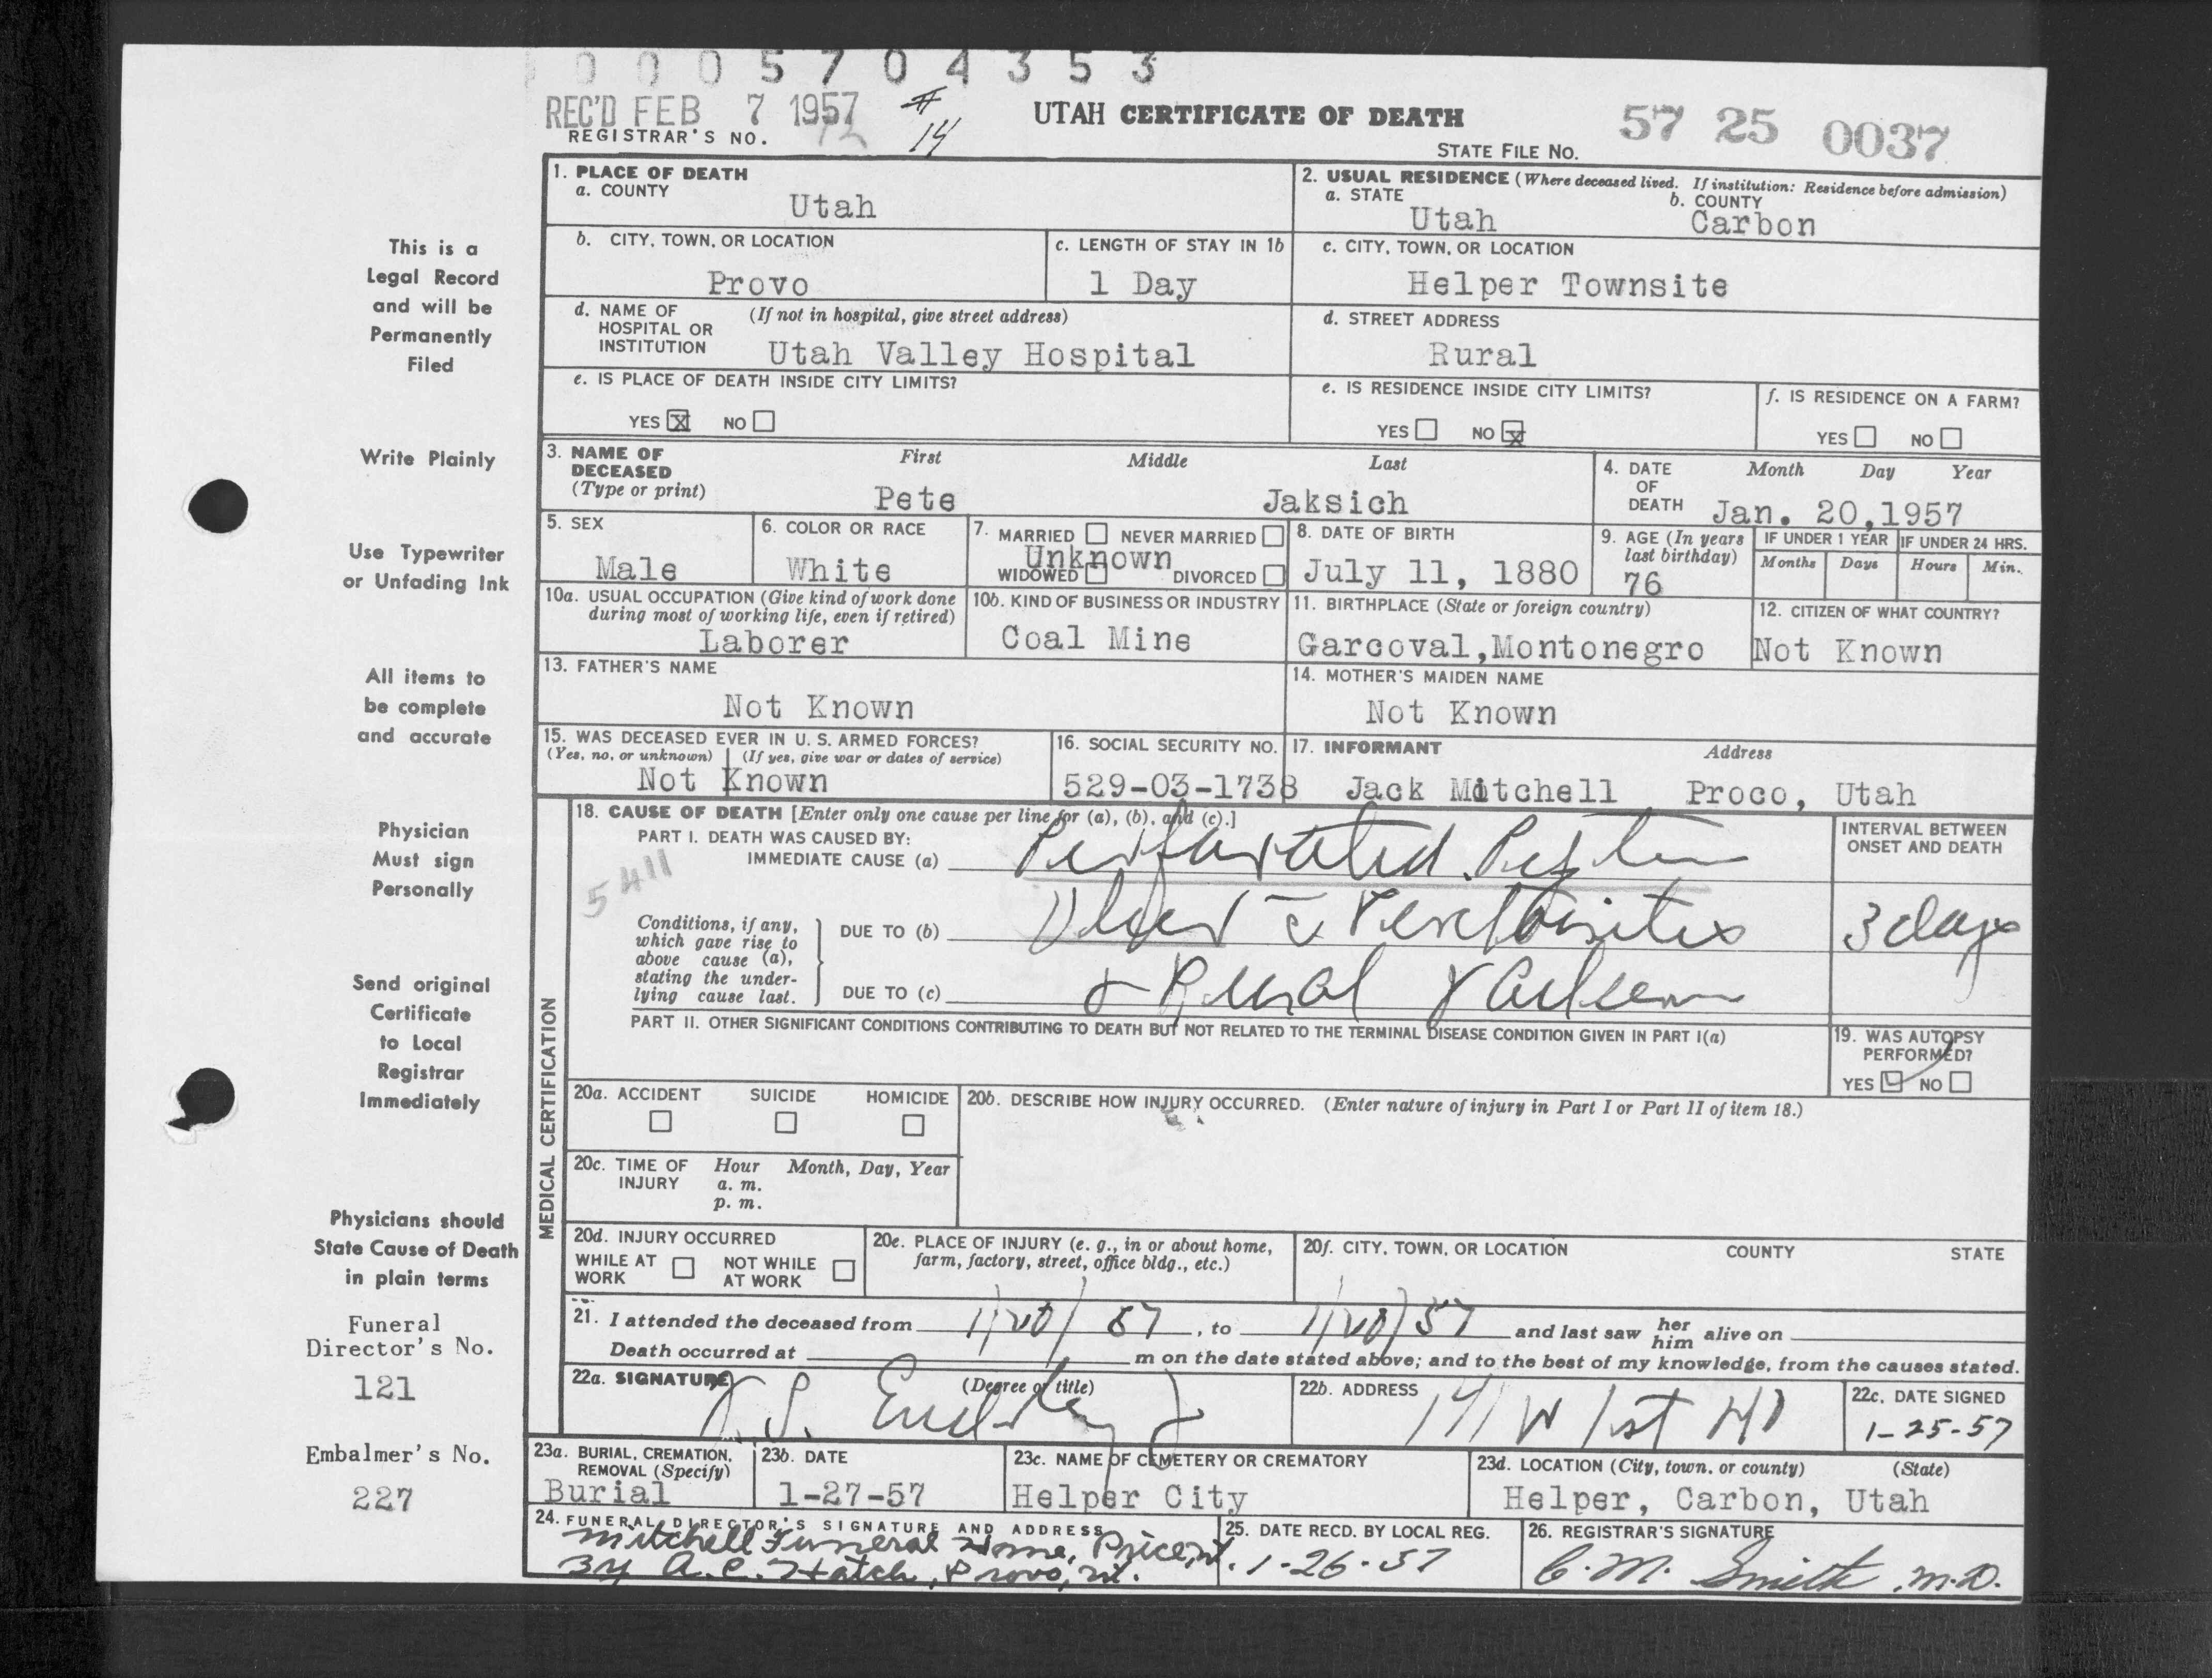 0005704353
REC'D FEB 7 1957
# 14
UTAH CERTIFICATE OF DEATH
57 25 0037
REGISTRAR'S NO. 12
STATE FILE NO.
This is a
Legal Record
and will be
Permanently
Filed
Write Plainly
Use Typewriter
or Unfading Ink
All items to
be complete
and accurate
Physician
Must sign
Personally
Send original
Certificate
to Local
Registrar
Immediately
Physicians should
State Cause of Death
in plain terms
Funeral
Director's No.
121
Embalmer's No.
227
1. PLACE OF DEATH
a. COUNTY
Utah
2. USUAL RESIDENCE (Where deceased lived. If institution: Residence before admission)
a. STATE b. COUNTY
Utah Carbon
b. CITY, TOWN, OR LOCATION
Provo
c. LENGTH OF STAY IN 1b
1 Day
c. CITY, TOWN, OR LOCATION
Helper Townsite
d. NAME OF (If not in hospital, give street address)
HOSPITAL OR
INSTITUTION Utah Valley Hospital
d. STREET ADDRESS
Rural
e. IS PLACE OF DEATH INSIDE CITY LIMITS?
YES X NO
e. IS RESIDENCE INSIDE CITY LIMITS?
YES NO X
f. IS RESIDENCE ON A FARM?
YES NO
3. NAME OF DECEASED
(Type or print)
First Middle Last
Pete Jaksich
4. DATE OF DEATH
Month Day Year
Jan. 20,1957
5. SEX
Male
6. COLOR OR RACE
White
7. MARRIED NEVER MARRIED
Unknown
WIDOWED DIVORCED
8. DATE OF BIRTH
July 11, 1880
9. AGE (In years last birthday)
76
IF UNDER 1 YEAR
Months Days
IF UNDER 24 HRS.
Hours Min.
10a. USUAL OCCUPATION (Give kind of work done
during most of working life, even if retired)
Laborer
10b. KIND OF BUSINESS OR INDUSTRY
Coal Mine
11. BIRTHPLACE (State or foreign country)
Garcoval,Montonegro
12. CITIZEN OF WHAT COUNTRY?
Not Known
13. FATHER'S NAME
Not Known
14. MOTHER'S MAIDEN NAME
Not Known
15. WAS DECEASED EVER IN U. S. ARMED FORCES?
(Yes, no, or unknown) (If yes, give war or dates of service)
Not Known
16. SOCIAL SECURITY NO.
529-03-1738
17. INFORMANT Address
Jack Mitchell Proco, Utah
MEDICAL CERTIFICATION
18. CAUSE OF DEATH [Enter only one cause per line for (a), (b), and (c).]
PART I. DEATH WAS CAUSED BY:
IMMEDIATE CAUSE (a) Perforated Peptic
5411
Conditions, if any,
which gave rise to
above cause (a),
stating the under-
lying cause last.
DUE TO (b) Ulcer c̄ Peritonitis
DUE TO (c) & Renal Failure
INTERVAL BETWEEN
ONSET AND DEATH
3 days
PART II. OTHER SIGNIFICANT CONDITIONS CONTRIBUTING TO DEATH BUT NOT RELATED TO THE TERMINAL DISEASE CONDITION GIVEN IN PART I(a)
19. WAS AUTOPSY
PERFORMED?
YES NO
20a. ACCIDENT SUICIDE HOMICIDE
20b. DESCRIBE HOW INJURY OCCURRED. (Enter nature of injury in Part I or Part II of item 18.)
20c. TIME OF INJURY
Hour Month, Day, Year
a. m.
p. m.
20d. INJURY OCCURRED
WHILE AT WORK NOT WHILE AT WORK
20e. PLACE OF INJURY (e. g., in or about home,
farm, factory, street, office bldg., etc.)
20f. CITY, TOWN, OR LOCATION COUNTY STATE
21. I attended the deceased from 1/20/57, to 1/20/57 and last saw her him alive on
Death occurred at m on the date stated above; and to the best of my knowledge, from the causes stated.
22a. SIGNATURE (Degree or title)
22b. ADDRESS
141 W 1st
22c. DATE SIGNED
1-25-57
23a. BURIAL, CREMATION,
REMOVAL (Specify)
Burial
23b. DATE
1-27-57
23c. NAME OF CEMETERY OR CREMATORY
Helper City
23d. LOCATION (City, town, or county) (State)
Helper, Carbon, Utah
24. FUNERAL DIRECTOR'S SIGNATURE AND ADDRESS
Mitchell Funeral Home, Price, Ut.
By A.C. Hatch, Provo, Ut.
25. DATE RECD. BY LOCAL REG.
1-26-57
26. REGISTRAR'S SIGNATURE
C.M. Smith M.D.